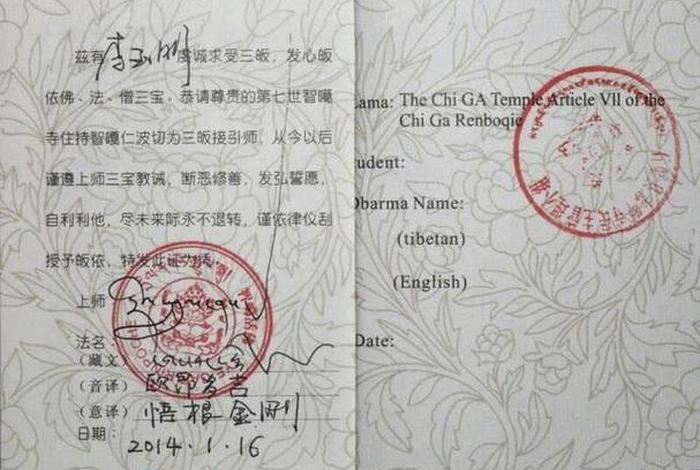 兹有李玉刚虔诚求受三皈，发心皈
依佛、法、僧三宝。恭请尊贵的第七世智噶
寺住持智嘎仁波切为三皈接引师，从今以后
谨遵上师三宝教诫，断恶修善，发弘誓愿，
自利利他，尽未来际永不退转，谨依律仪刮
授予皈依，特发此证为凭。
上师
法名：
（藏文）
（音译）
（意译）悟根金刚
日期：2014.1.16
Lama: The Chi GA Temple Article Vll of the
Chi Ga Renboqie
tudent:
Dharma Name:
(tibetan)
(English)
Date: